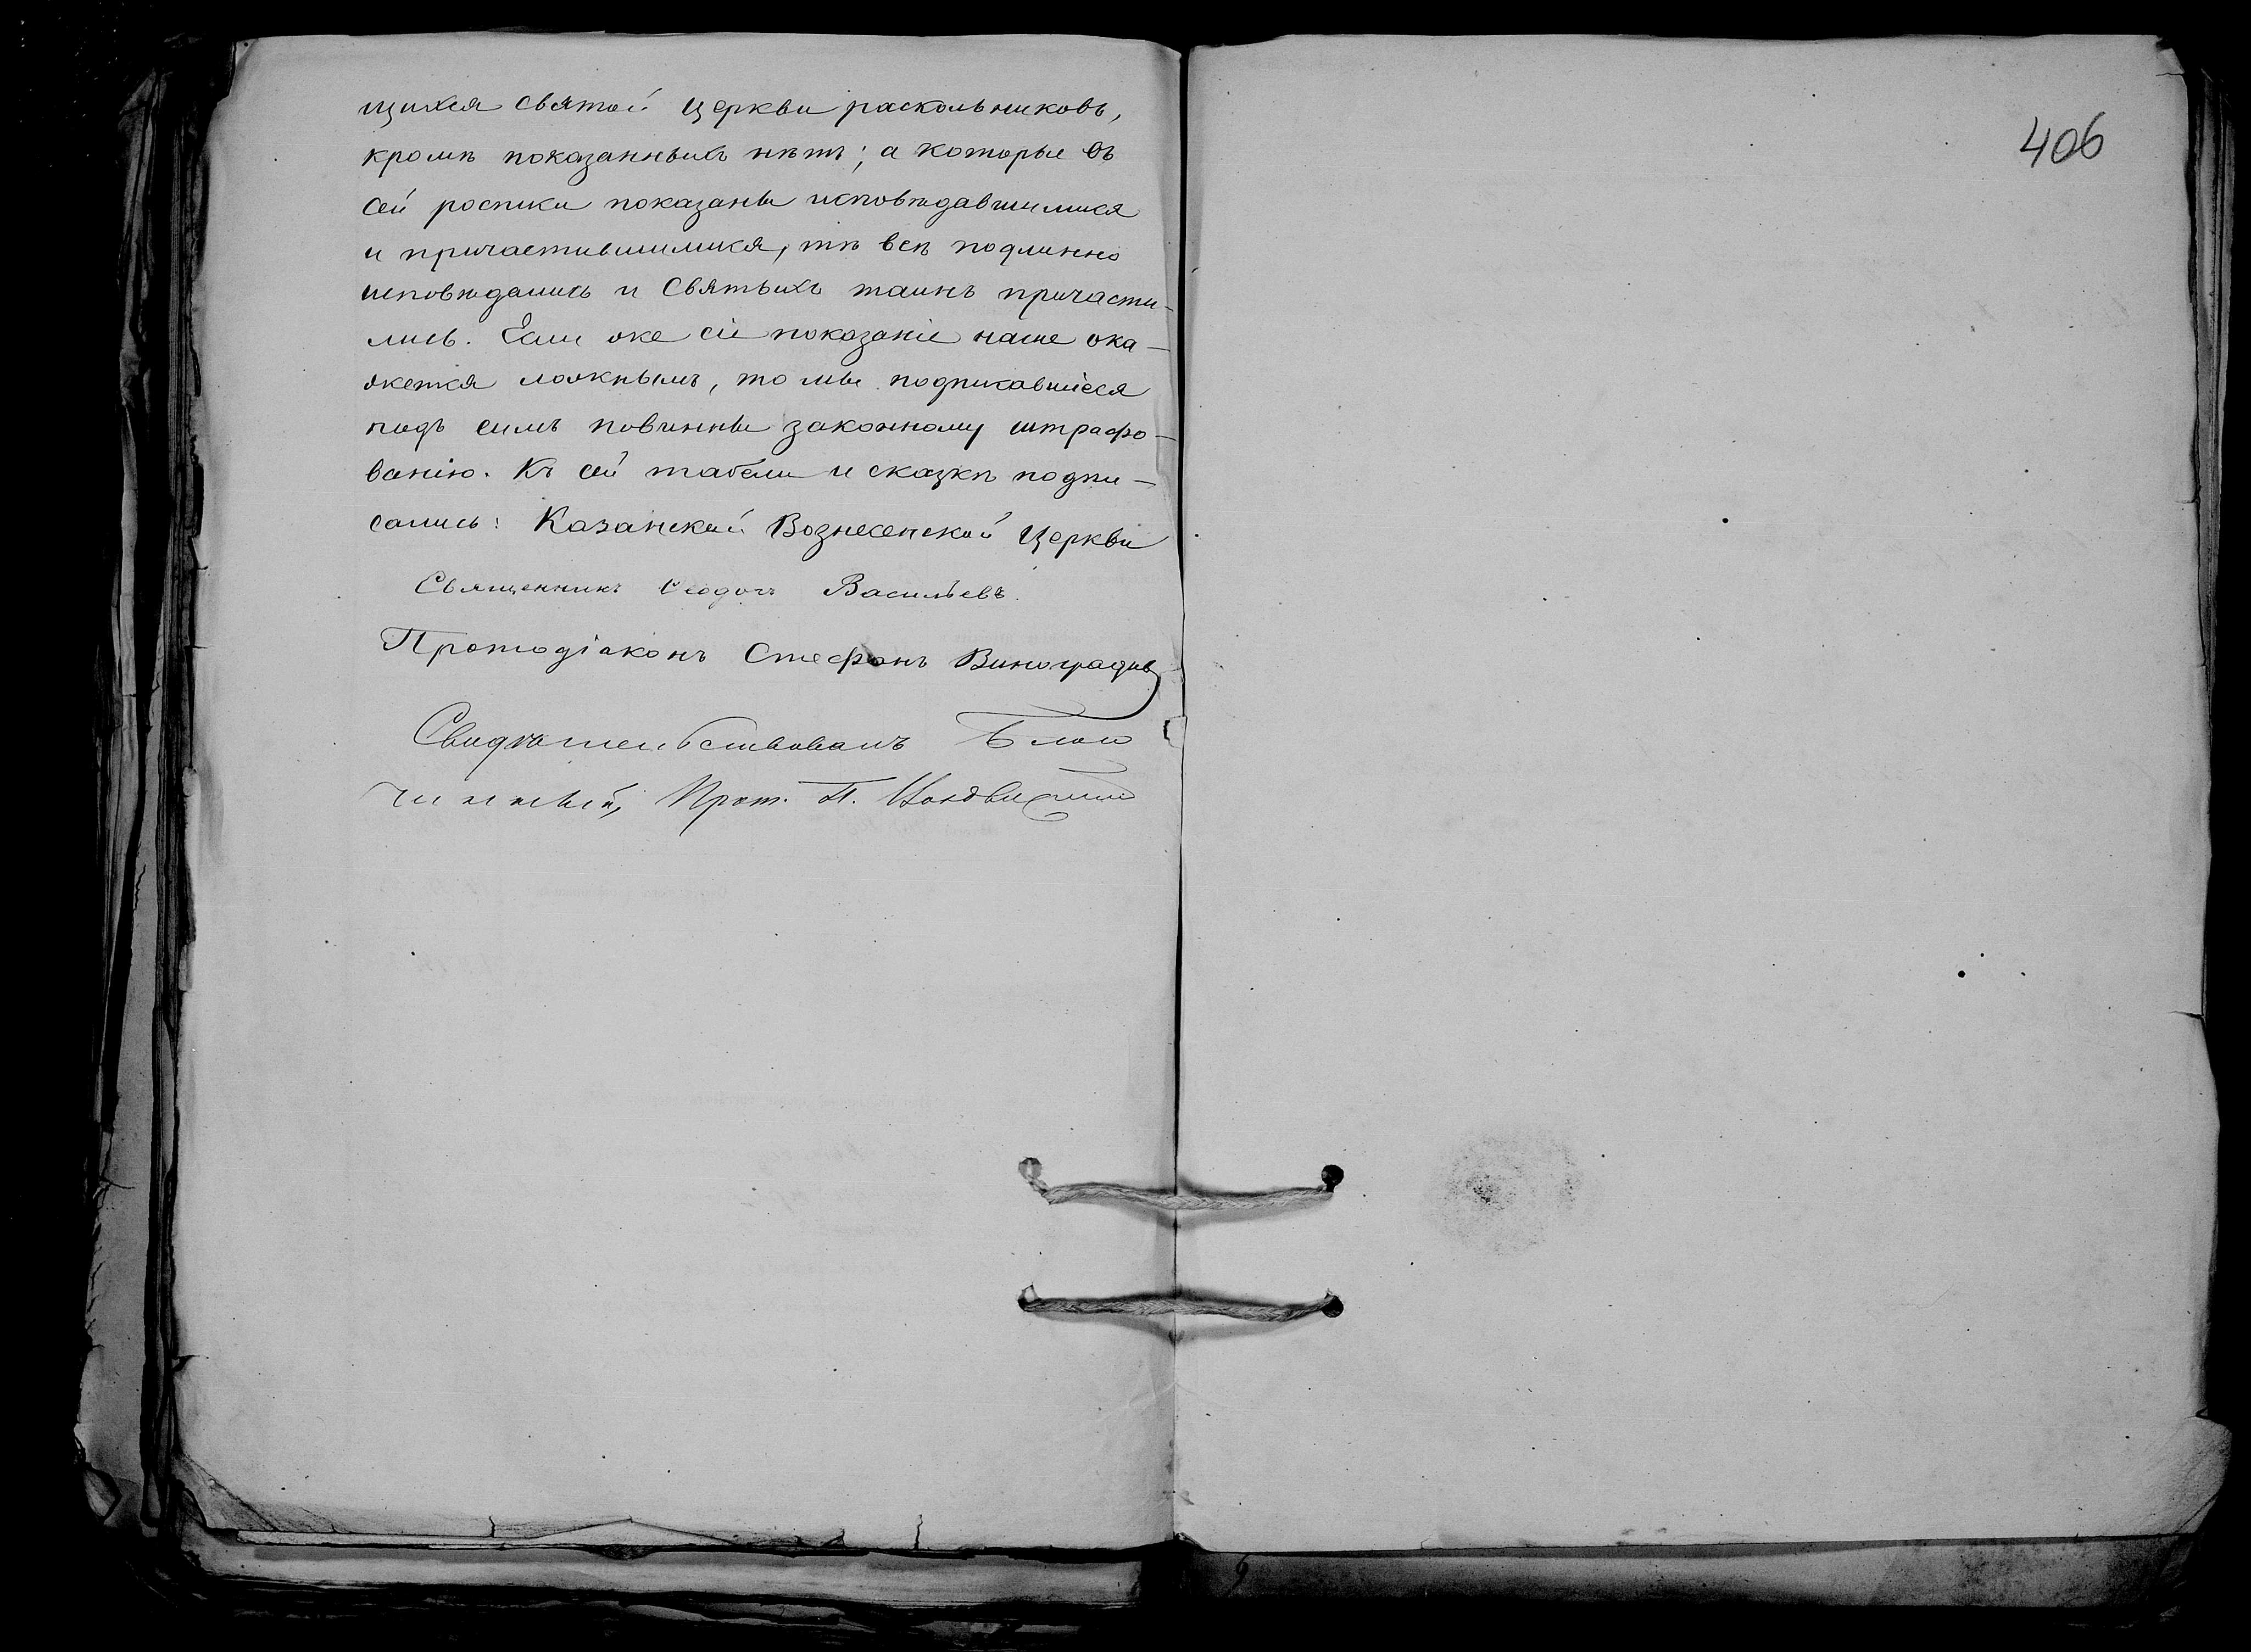 щихся святой церкви раскольниковъ,
кромѣ показанныхъ нѣтъ; а которые въ
сей росписи показаны исповѣдавшимися
и причастившимися, тѣ всѣ подлинно
исповѣдались и Святыхъ таинъ причасти-
лись. Если же сіе показаніе наше ока-
жется ложнымъ, то мы подписавшіеся
подъ симъ повинны законному штрафо-
ванію. Къ сей табели и сказкѣ подпи-
сались: Казанской Вознесенской Церкви
Священникъ Васильевъ.
Протодіаконъ Стефанъ Виноградовъ
Свидѣтельствовалъ Благо
чинный, Прот. П.
406